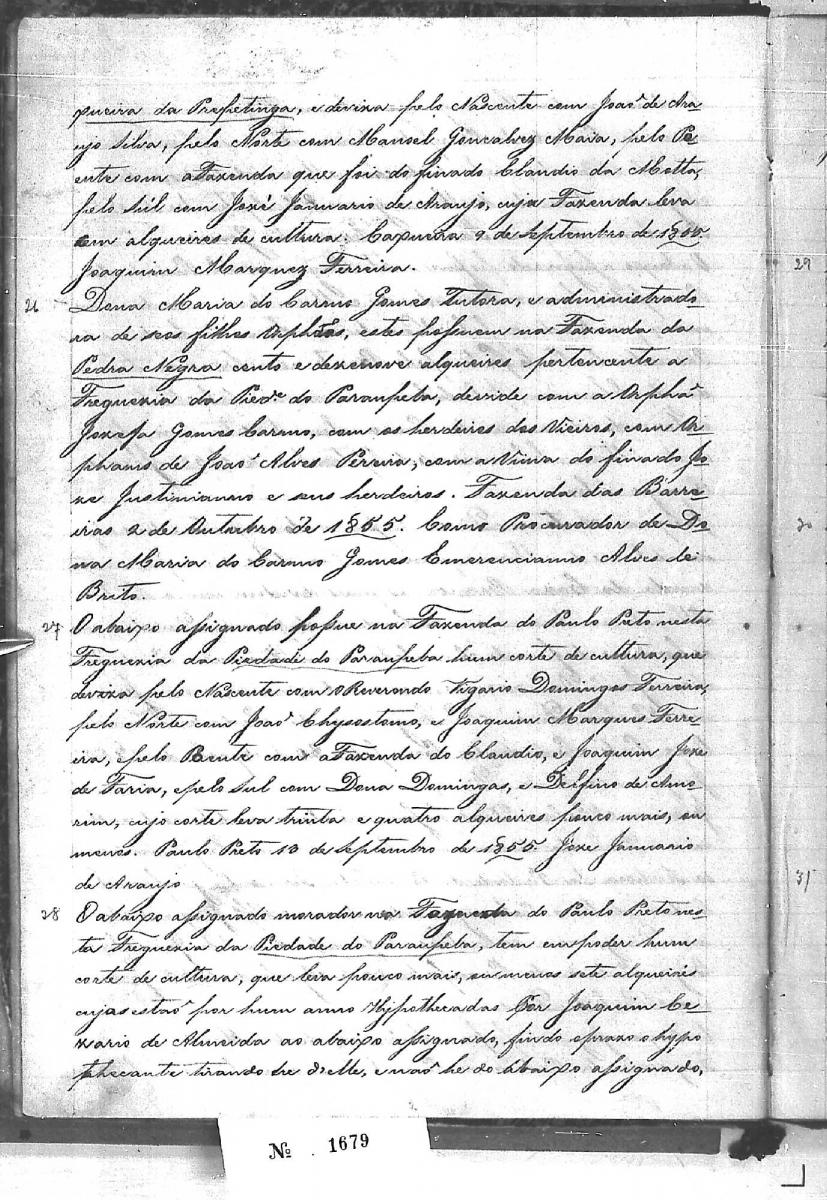 pueira da Prepetinga, e deviza pelo Nascente com Joaõ de Ara
ujo Silva, pelo Norte com Manoel Goncalvez Maia, pelo Po
ente com a Fazenda que foi do finado Claudio da Motta,
pelo Súl com Jozé Januario de Araujo, cuja Fazenda leva
cem alqueires de cultura. Capueira 9 de Septembro de
Joaquim Marquez Ferreira.
26 Dona Maria do Carmo Gomes Tutora, e administrado-
ra de seos filhos Orphãos, estes possuem na Fazenda da
Pedra Negra cento e dezenove alqueires pertencente a
Freguezia da Piede do Paraupeba, devide com a Orphã
Jozefa Gomes Carmo, com os herdeiros dos Vieiros, com Or-
phams de Joaõ Alves Pereira, com a Viuva do finado Jo-
ze Justinianno e seus herdeiros. Fazenda das Barre-
iras 2 de Outubro de 1855. Como Procurador de Do-
na Maria do Carmo Gomes Emerencianno Alves de
Brito.
27 O abaixo assignado possue na Fazenda do Paulo Preto nesta
Freguezia da Piedade do Paraupeba hum corte de cultura, que
deviza pelo Nascente com o Reverendo Vigario Domingos Ferreira,
pelo Norte com Joaõ Chysostomo, e Joaquim Marques Ferre-
ira, e pelo Poente com a Fazenda do Claudio, e Joaquim Joze
de Faria, e pelo Sul com Dona Domingas, e Delfino de Amo-
rim, cujo corte leva trinta e quatro alqueires pouco mais, ou
menos. Paulo Preto 13 de Septembro de 1855. Joze Januario
de Araujo
28 O abaixo assignado morador na Fazenda do Paulo Preto nes-
ta Freguezia da Piedade do Paraupeba, tem em poder hum
corte de cultura, que leva pouco mais, ou menos sete alqueires
cujas estaõ por hum anno Hypothecadas Por Joaquim Ce-
zario de Almeida ao abaixo assignado, findo o prazo o hypo
thecante tirando se d'elle, e naõ he do abaixo assignado,
29
30
31
Nº 1679